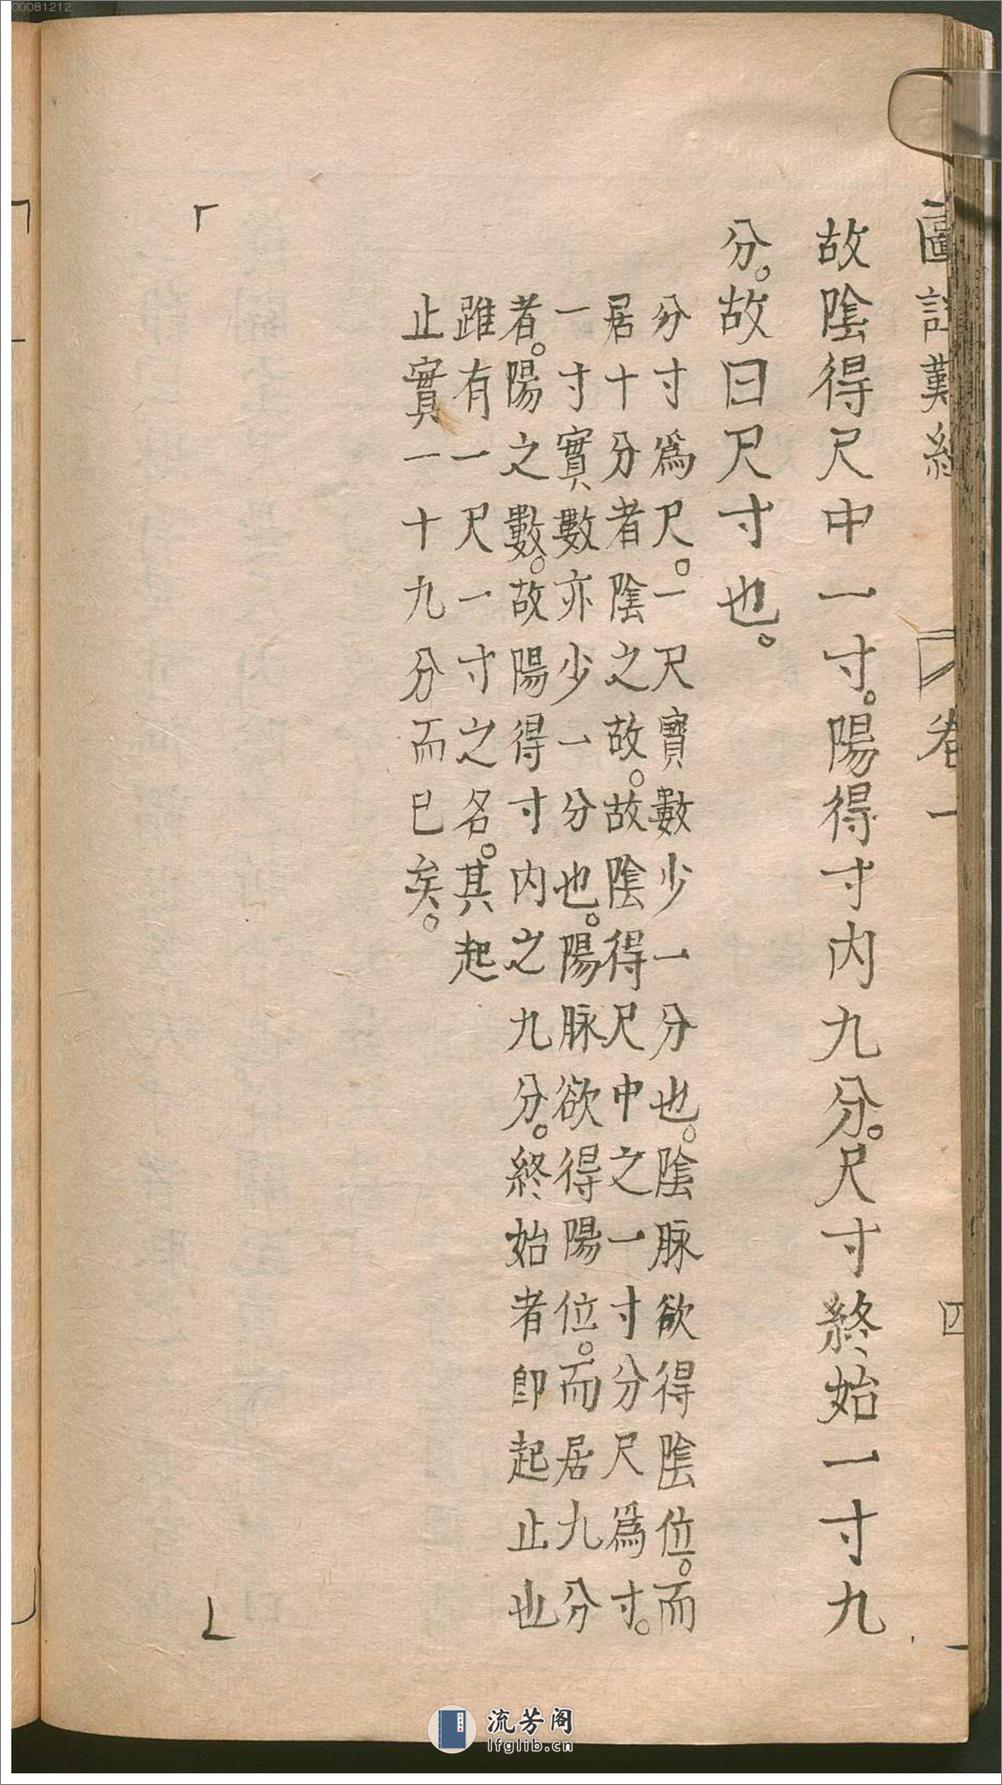 圖註難經 卷一 四
故陰得尺中一寸。陽得寸内九分。尺寸終始一寸九
分。故曰尺寸也。
分寸爲尺。一尺實數少一分也。陰脉欲得陰位。而
居十分者陰之故。故陰得尺中之一寸分尺爲寸。
一寸實數亦少一分也。陽脉欲得陽位。而居九分
者。陽之數。故陽得寸内之九分。終始者即起止也
雖有一尺一寸之名。其起
止實一十九分而已矣。
00081212
流芳阁
lfglib.cn